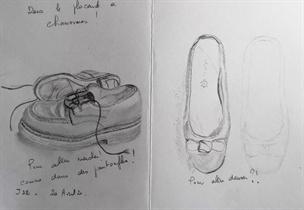 Dans le placard a
chaussures !
Pour aller marcher
comme dans des pantoufles !
Pour aller danser ?!